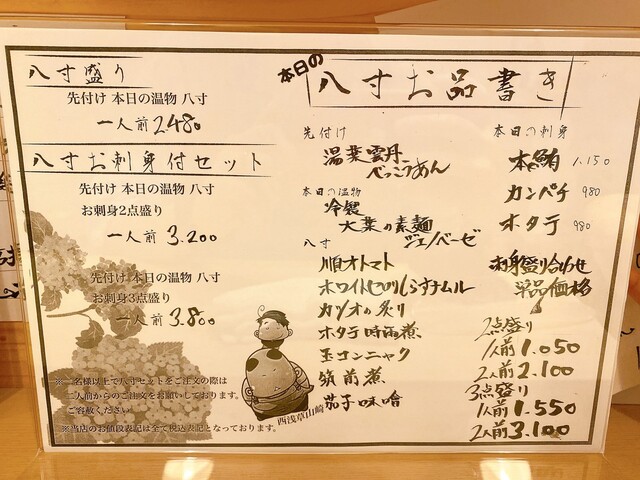 八寸盛り
先付け 本日の温物 八寸
一人前 2480
八寸お刺身付セット
先付け 本日の温物 八寸
お刺身2点盛り
一人前 3.200
先付け 本日の温物 八寸
お刺身3点盛り
一人前 3.800
※二名様以上で八寸セットをご注文の際は
二人前からのご注文をお願いしております。
ご容赦ください
※当店のお値段表記は全て税込表記となっております。
西浅草山崎
本日の
八寸お品書き
先付け
湯葉雲丹
べっこうあん
本日の温物
冷製
大葉の素麺
ジェノベーゼ
八寸
順才トマト
ホワイトセロリしらすナムル
カツオの炙り
ホタテ時雨煮
玉コンニャク
筑前煮
茄子味噌
本日の刺身
本鮪 1.150
カンパチ 980
ホタテ 980
刺身盛り合わせ
単品価格
2点盛り
1人前 1.050
2人前 2.100
3点盛り
1人前 1.550
2人前 3.100